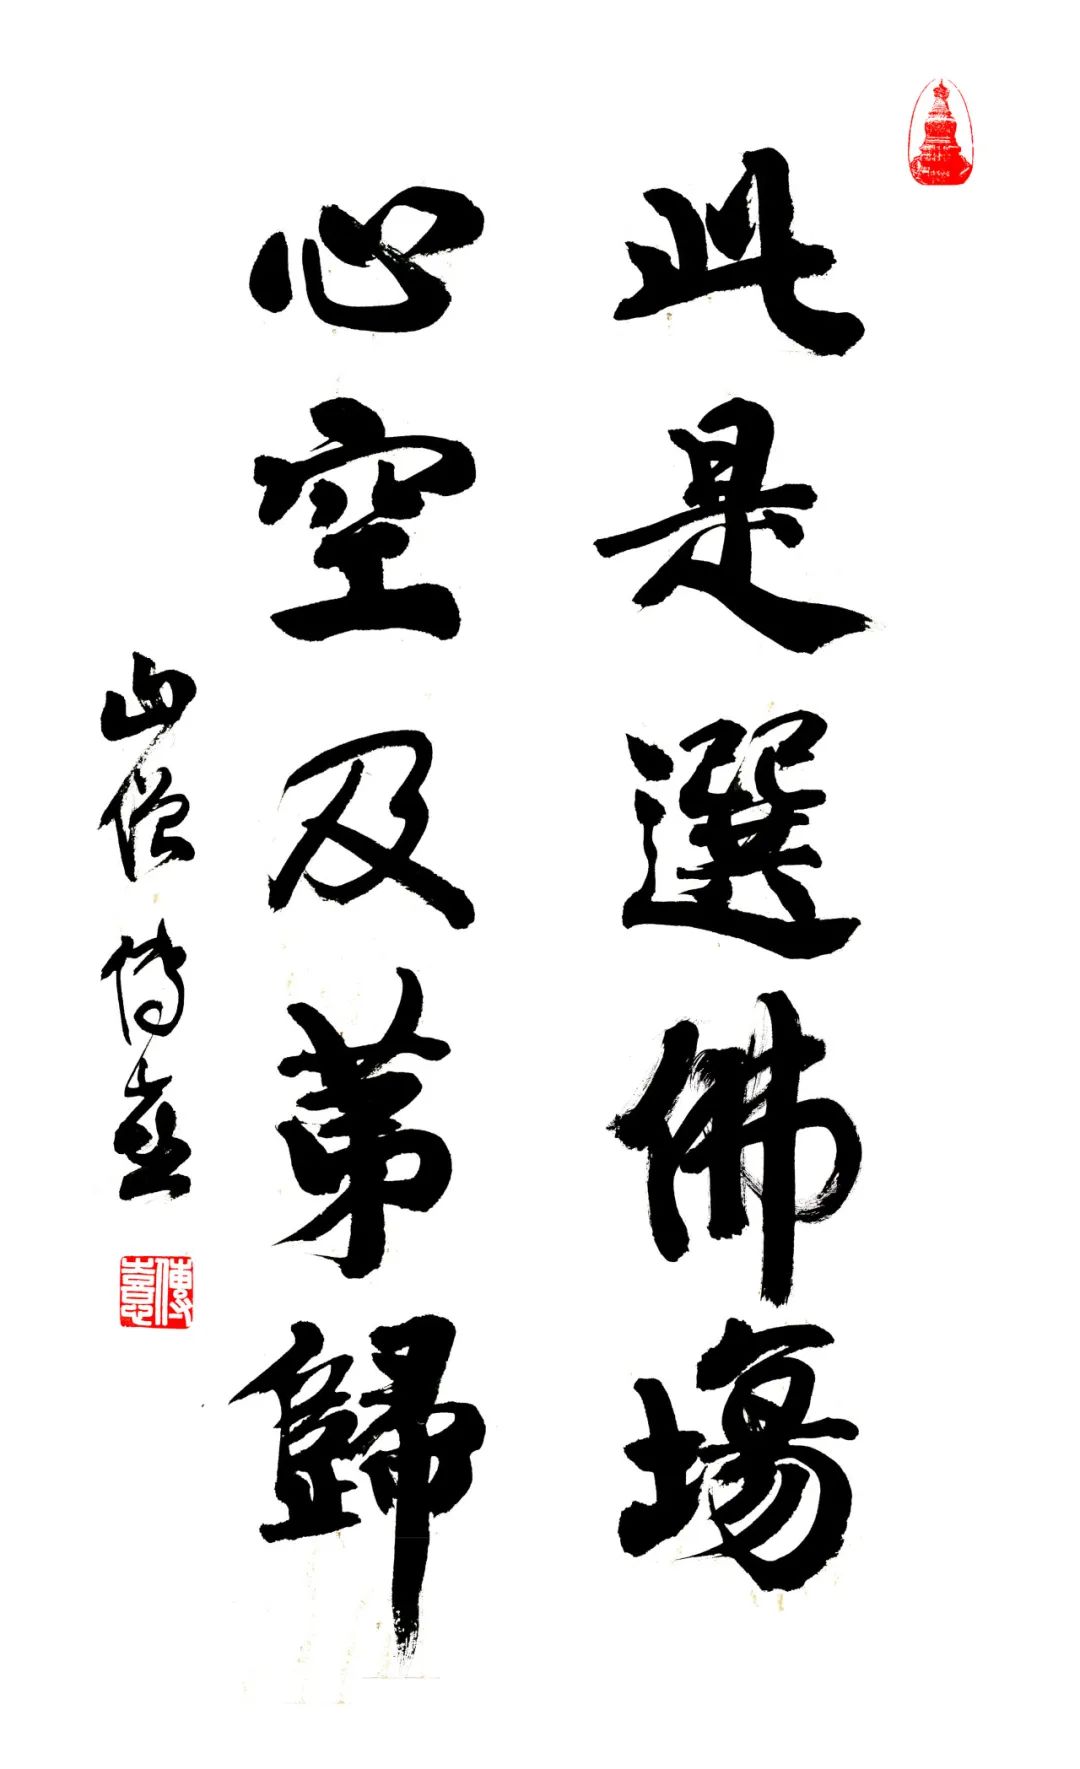 此是選佛場
心空及第歸
山僧傳喜
傳喜